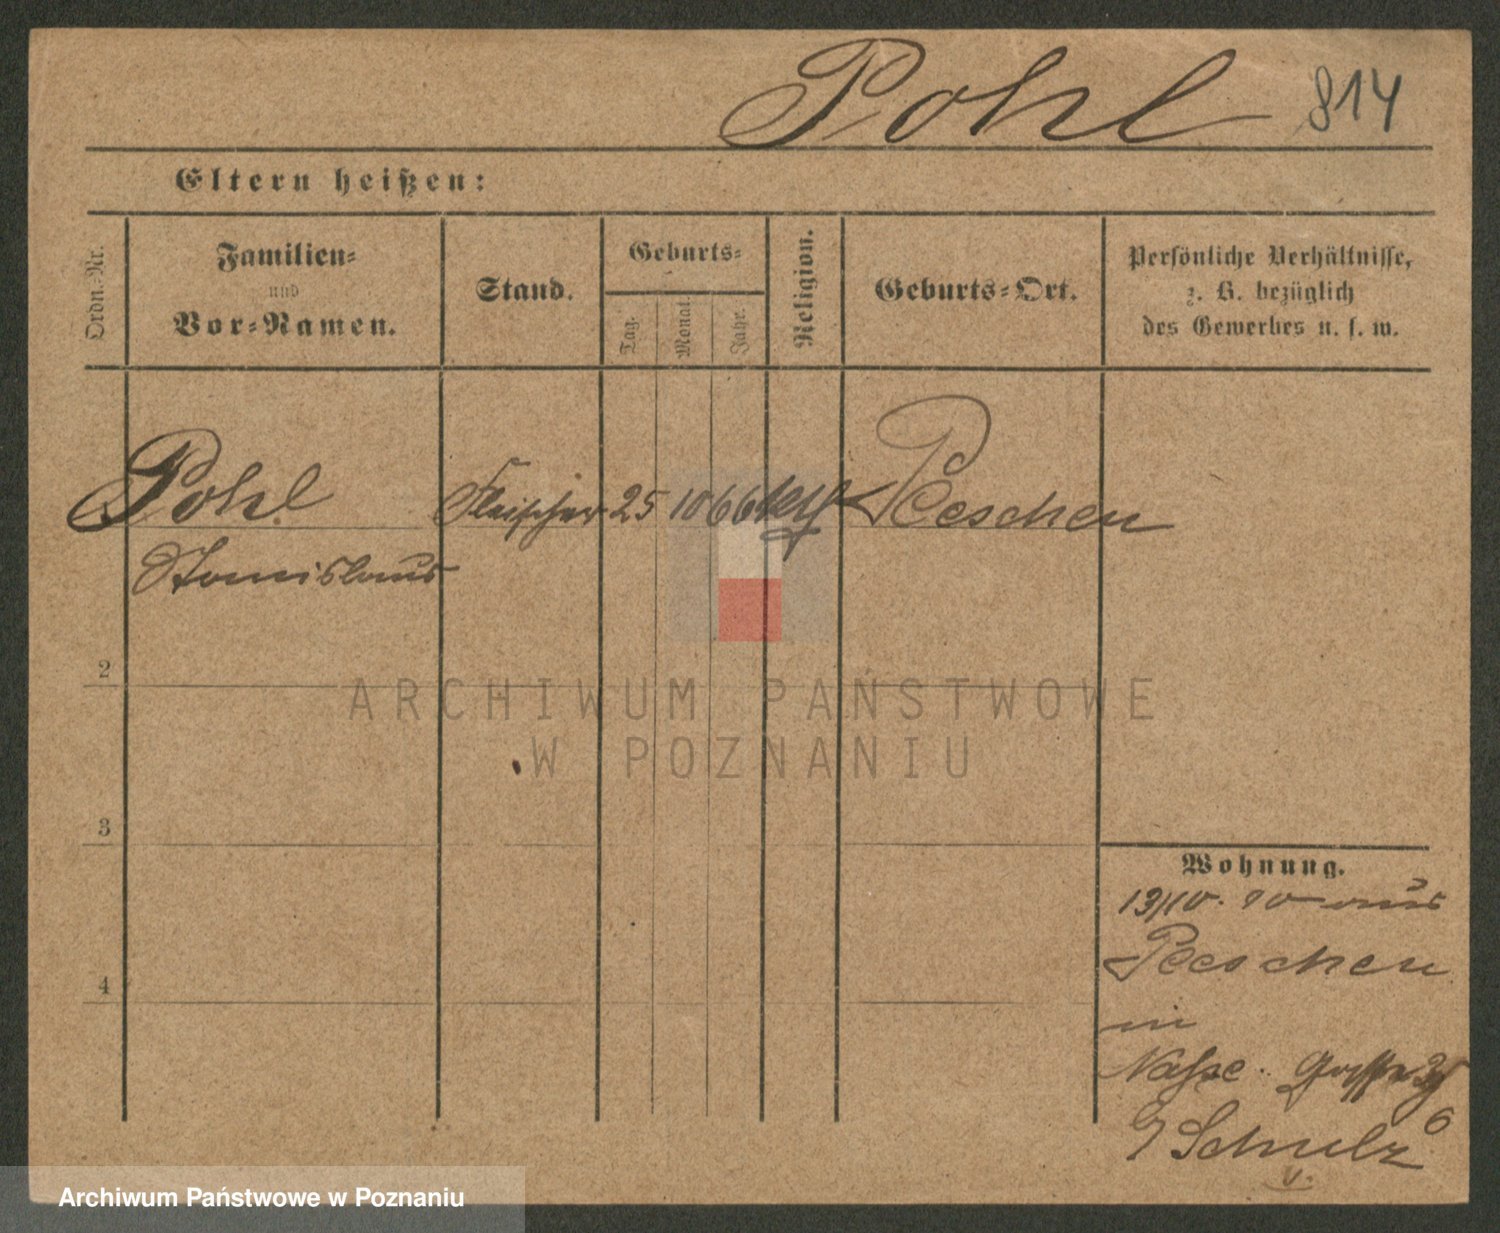 Pohl 814
Eltern heißen:
Ordn.-Nr.
Familien-
und
Vor-Namen.
Stand.
Geburts-
Tag.
Monat.
Jahr.
Religion.
Geburts-Ort.
Persönliche Verhältnisse,
z. B. bezüglich
des Gewerbes u. s. w.
Pohl Fleischer 25 10 66 kth Pleschen
Stanislaus
2
3
4
Wohnung.
13/10. 90 aus
Pleschen
in
Nasse Gasse
Schulz
ARCHIWUM PAŃSTWOWE
W POZNANIU
Archiwum Państwowe w Poznaniu